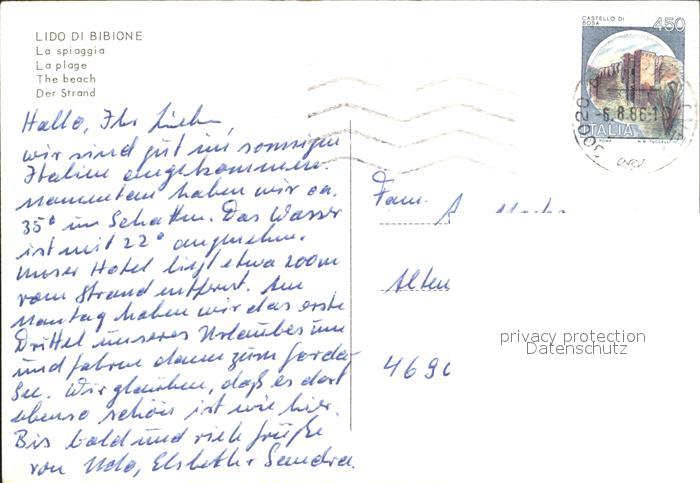 LIDO DI BIBIONE
La spiaggia
La plage
The beach
Der Strand
CASTELLO DI
BOSA
450
ITALIA
ROMA
-6.8.86-1
30020
Hallo, Ihr Lieben,
wir sind gut im sonnigen
Italien angekommen.
Momentan haben wir ca.
35° im Schatten. Das Wasser
ist mit 22° angenehm.
Unser Hotel liegt etwa 200m
vom Strand entfernt. Am
Montag haben wir das erste
Drittel unseres Urlaubes um
und fahren dann zum Garda-
See. Wir glauben, daß es dort
ebenso schön ist wie hier.
Bis bald und viele Grüße
von Udo, Elsbeth + Sandra.
Fam.
Alten
4690
privacy protection
Datenschutz